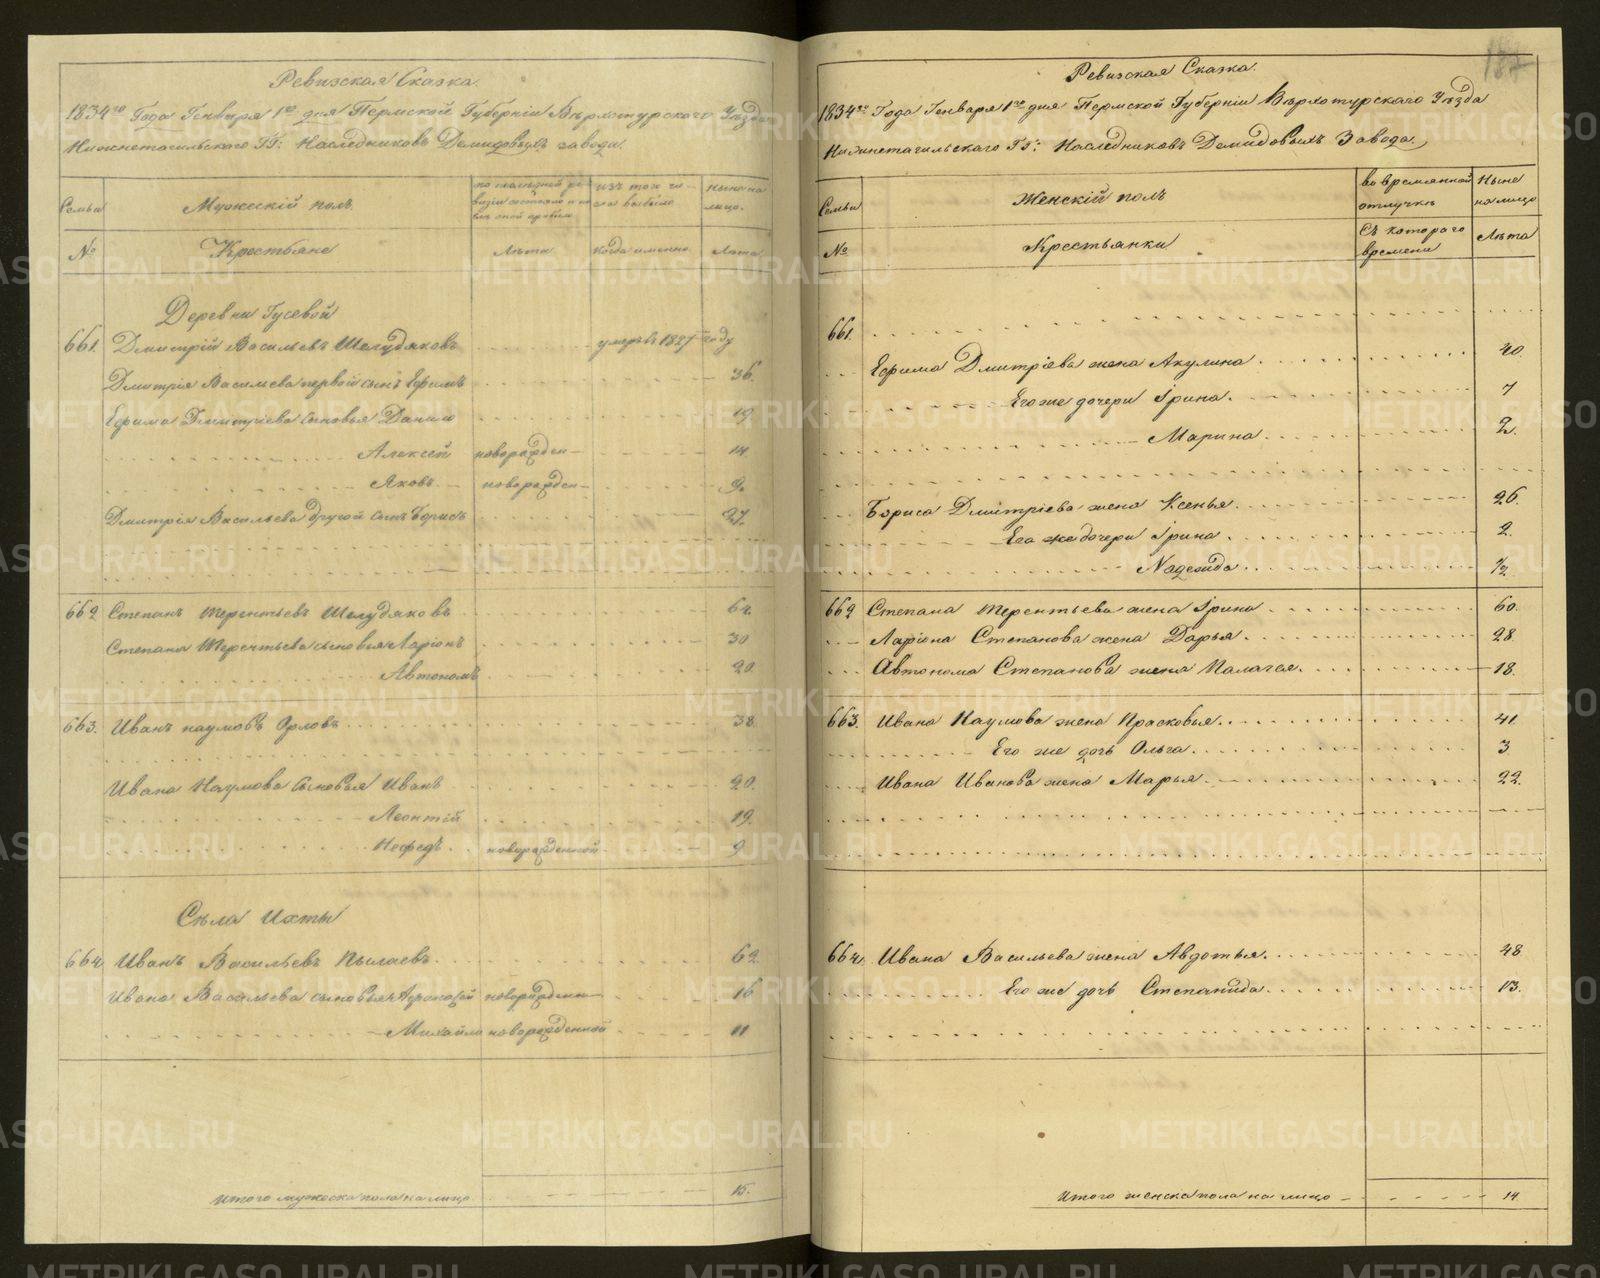 Ревизская Сказка.
1834го Года Генваря 1го дня Пермской Губернiи Верхотурскаго Уезда
Нижнетагильскаго ГГ: Наследниковъ Демидовыхъ завода.
Семьи
Мужескiй полъ.
Ныне на лицо.
№
Крестьяне
Лета
когда именно
Лета
Деревни Гусевой
661. Дмитрiй Васильевъ Шелудяковъ умеръ въ 1827 году
Дмитрiя Васильева первой сынъ Ефимъ 36.
Ефима Дмитрiева сыновья Данило 19
Алексей новорожден 14
Яковъ новорожден 9.
Дмитрiя Васильева другой сынъ Борисъ 27.
662 Степанъ Терентьевъ Шелудяковъ 64.
Степана Терентьева сыновья Ларiонъ 30
Автономъ 20.
663. Иванъ Наумовъ Орловъ 38.
Ивана Наумова сыновья Иванъ 20.
Леонтiй 19.
Нефедъ новорожденной 9
Села
664 Иванъ Васильевъ Пылаевъ. 62.
Ивана Васильева сыновья новорожден 16
Михайло новорожденной 11
Итого мужеска пола на лицо 15.
Ревизская Сказка.
1834го Года Генваря 1го дня Пермской Губернiи Верхотурскаго Уезда
Нижнетагильскаго ГГ: Наследниковъ Демидовыхъ Завода.
Семьи
Женскiй полъ
во временной отлучке
Ныне на лицо
№
Крестьянки
Съ котораго времени
Лета
661.
Ефима Дмитрiева жена Акулина 40.
Его же дочери Iрина. 7
Марина. 2.
Бориса Дмитрiева жена Ксенья. 26.
Его же дочери Iрина 2.
Надежда 1/2
662 Степана Терентьева жена Iрина 60.
Ларiона Степанова жена Дарья. 28
Автонома Степанова жена Палагея. 18.
663. Ивана Наумова жена Прасковья. 41.
Его же дочь Ольга. 3
Ивана Иванова жена Марья. 22.
664. Ивана Васильева жена Авдотья. 48
Его же дочь Степанида 13.
Итого женска пола на лицо 14
METRIKI.GASO-URAL.RU